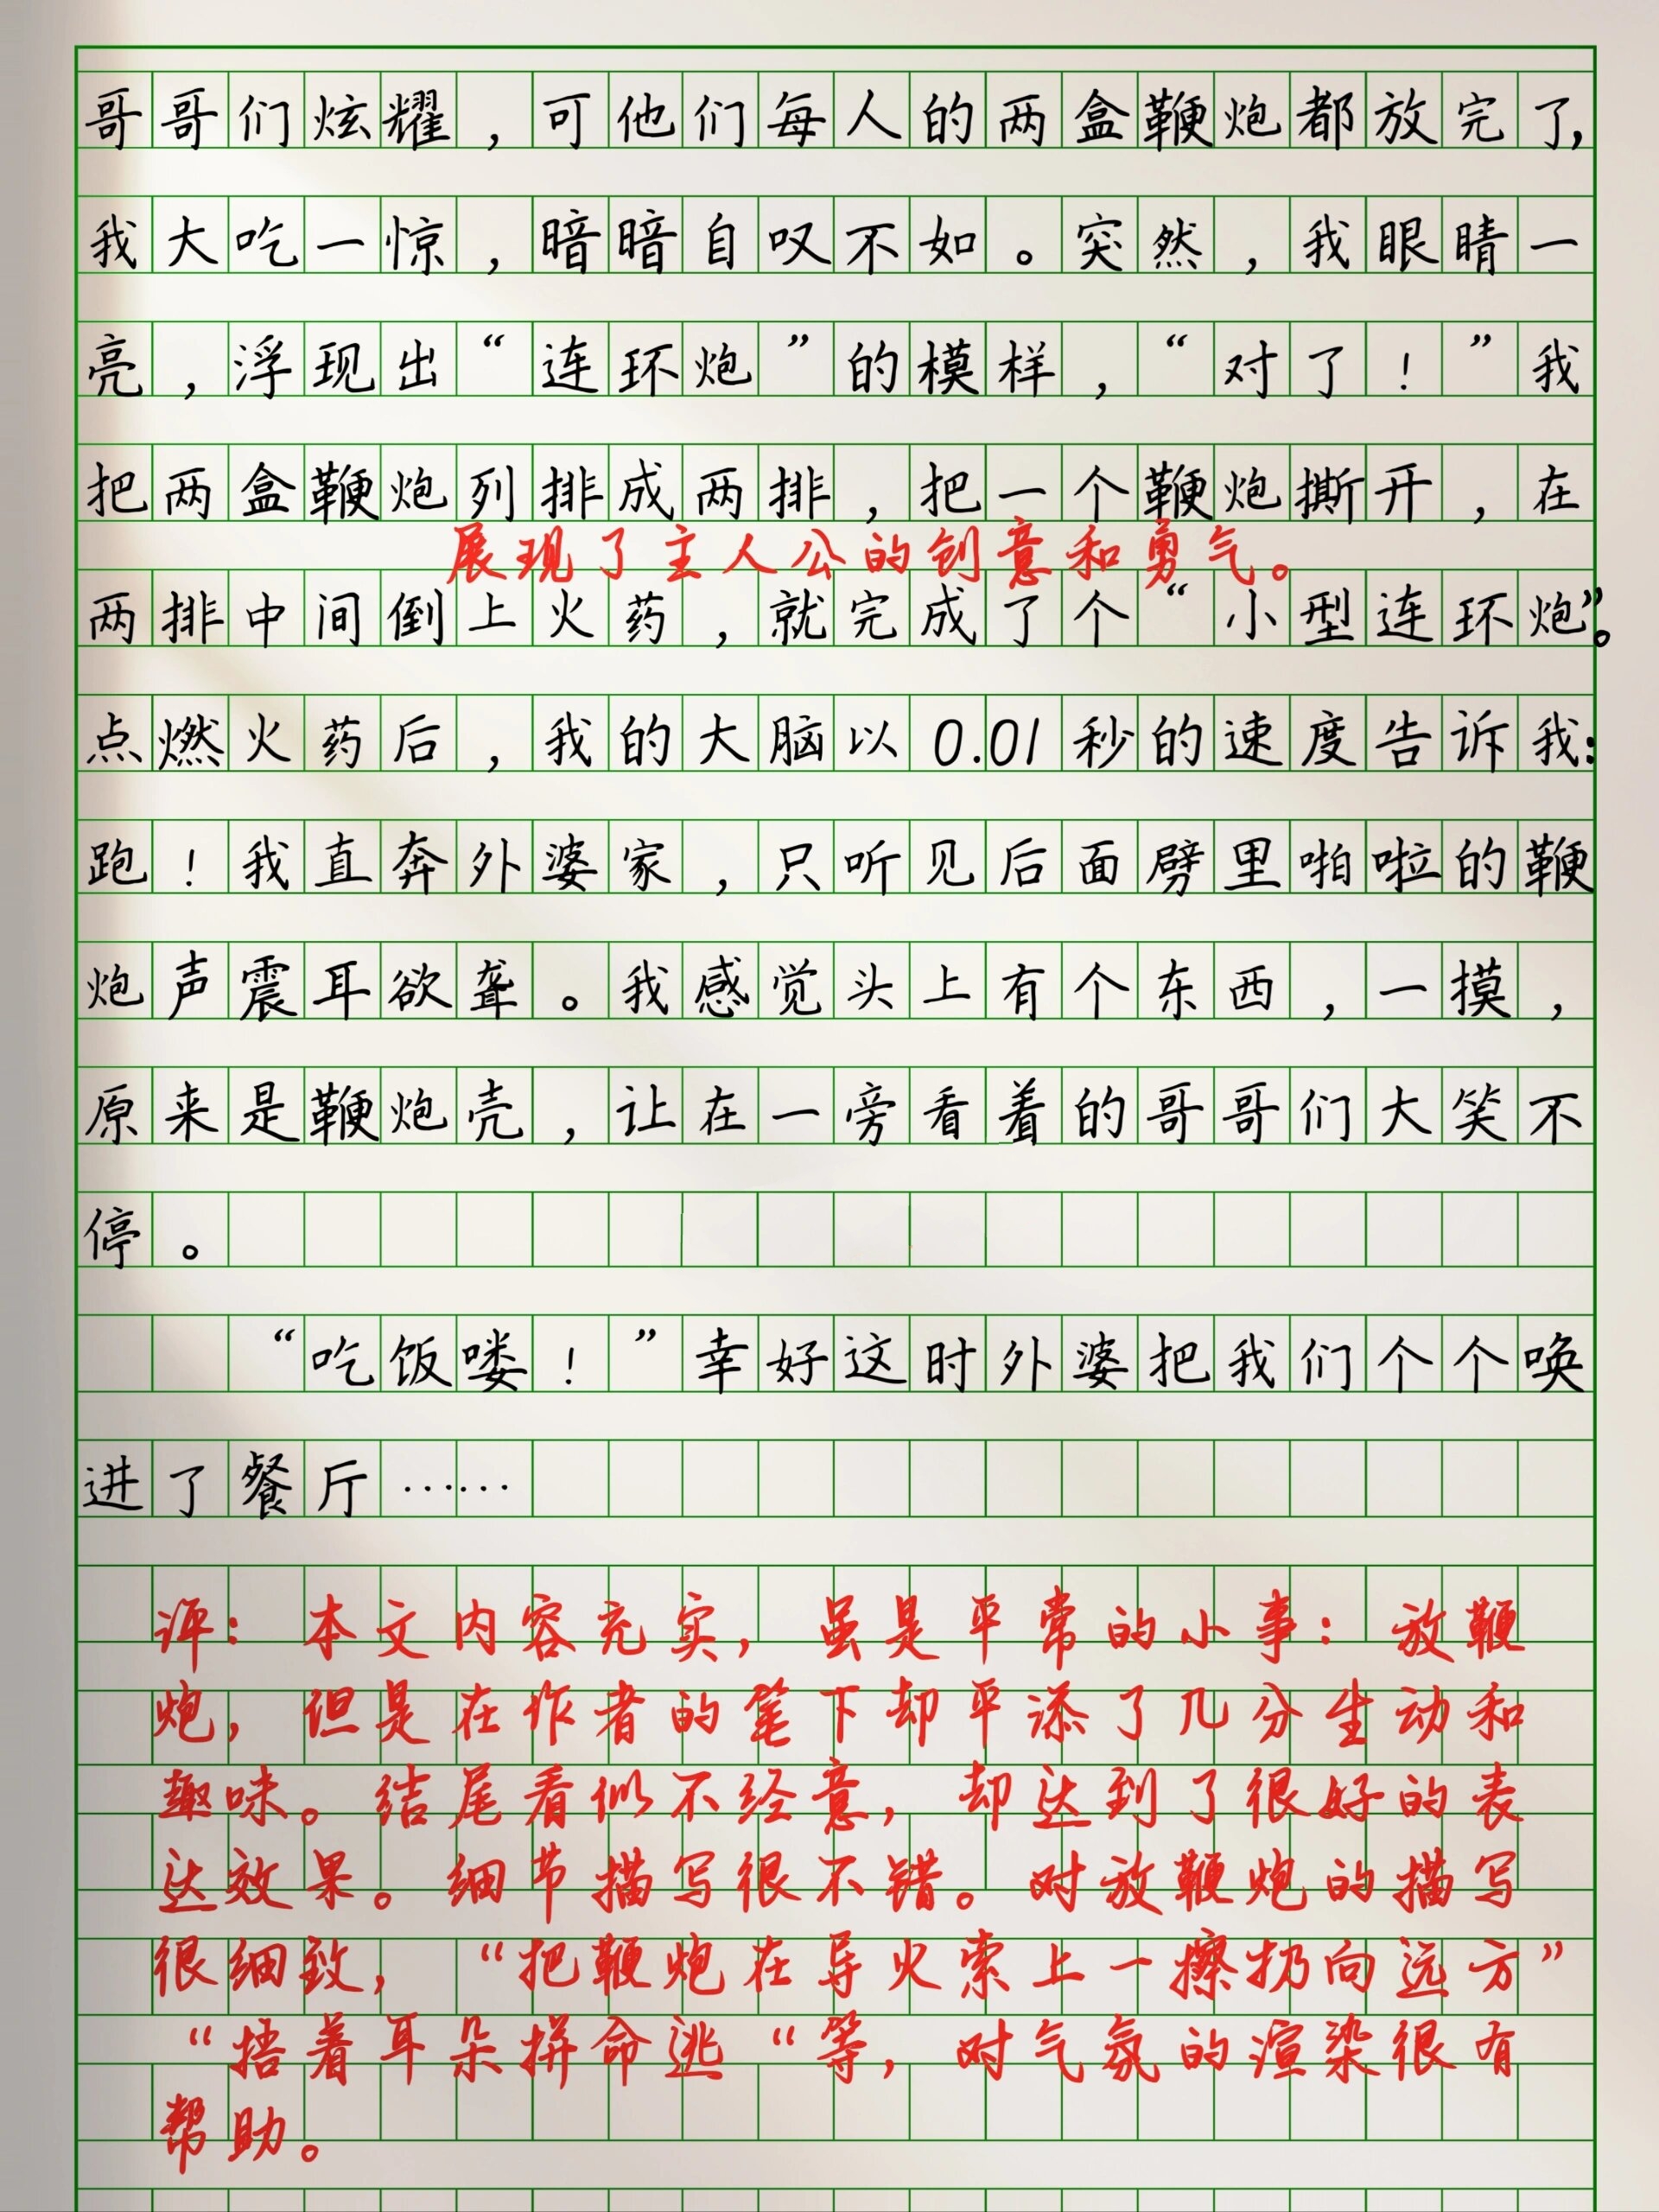 哥哥们炫耀，可他们每人的两盒鞭炮都放完了，
我大吃一惊，暗暗自叹不如。突然，我眼睛一
亮，浮现出“连环炮”的模样，“对了！”我
把两盒鞭炮列排成两排，把一个鞭炮撕开，在
展现了主人公的创意和勇气。
两排中间倒上火药，就完成了个“小型连环炮”。
点燃火药后，我的大脑以0.01秒的速度告诉我：
跑！我直奔外婆家，只听见后面劈里啪啦的鞭
炮声震耳欲聋。我感觉头上有个东西，一摸，
原来是鞭炮壳，让在一旁看着的哥哥们大笑不
停。
“吃饭喽！”幸好这时外婆把我们个个唤
进了餐厅……
评：本文内容充实，虽是平常的小事：放鞭
炮，但是在作者的笔下却平添了几分生动和
趣味。结尾看似不经意，却达到了很好的表
达效果。细节描写很不错。对放鞭炮的描写
很细致，“把鞭炮在导火索上一擦扔向远方”
“捂着耳朵拼命逃“等，对气氛的渲染很有
帮助。